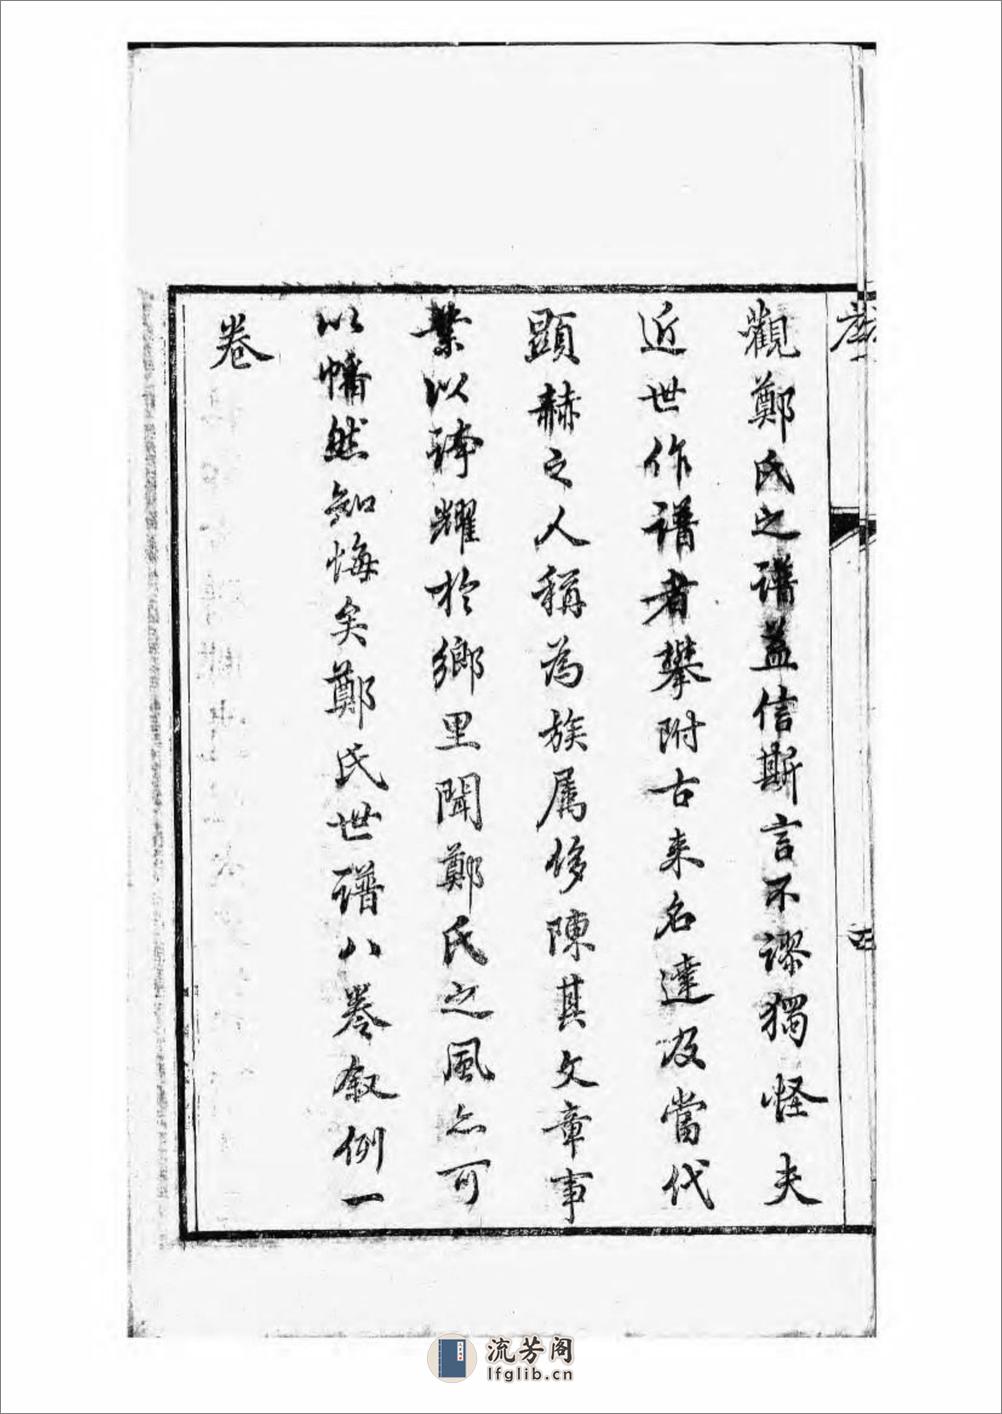 觀鄭氏之譜益信斯言不謬獨怪夫
近世作譜者攀附古来名達及當代
顕赫之人稱為族属侈陳其文章事
業以誇耀於鄉里聞鄭氏之風亦可
以幡然知悔矣鄭氏世譜八卷叙例一
卷
流芳阁
lfglib.cn